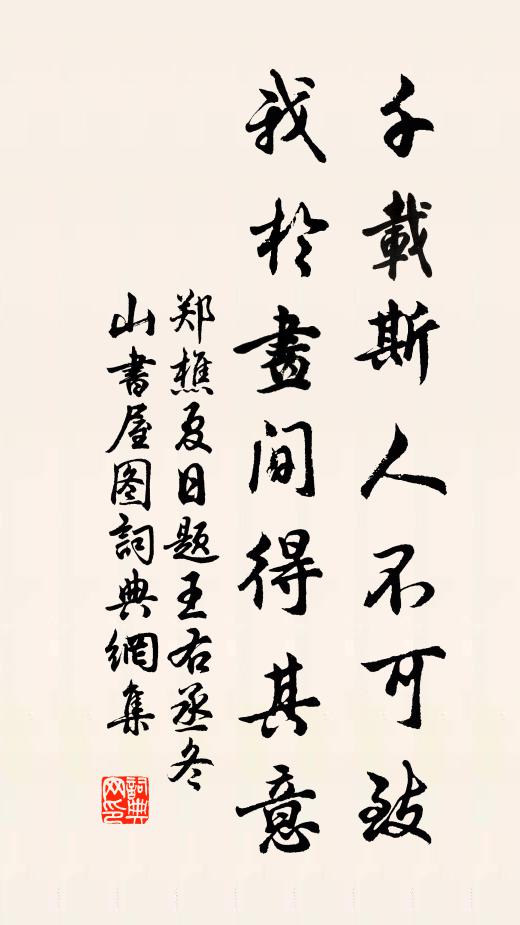 千載斯人不可致
我於畫間得其意
郑樵夏日題王右丞冬
山書屋图詞典網集
詞典网印